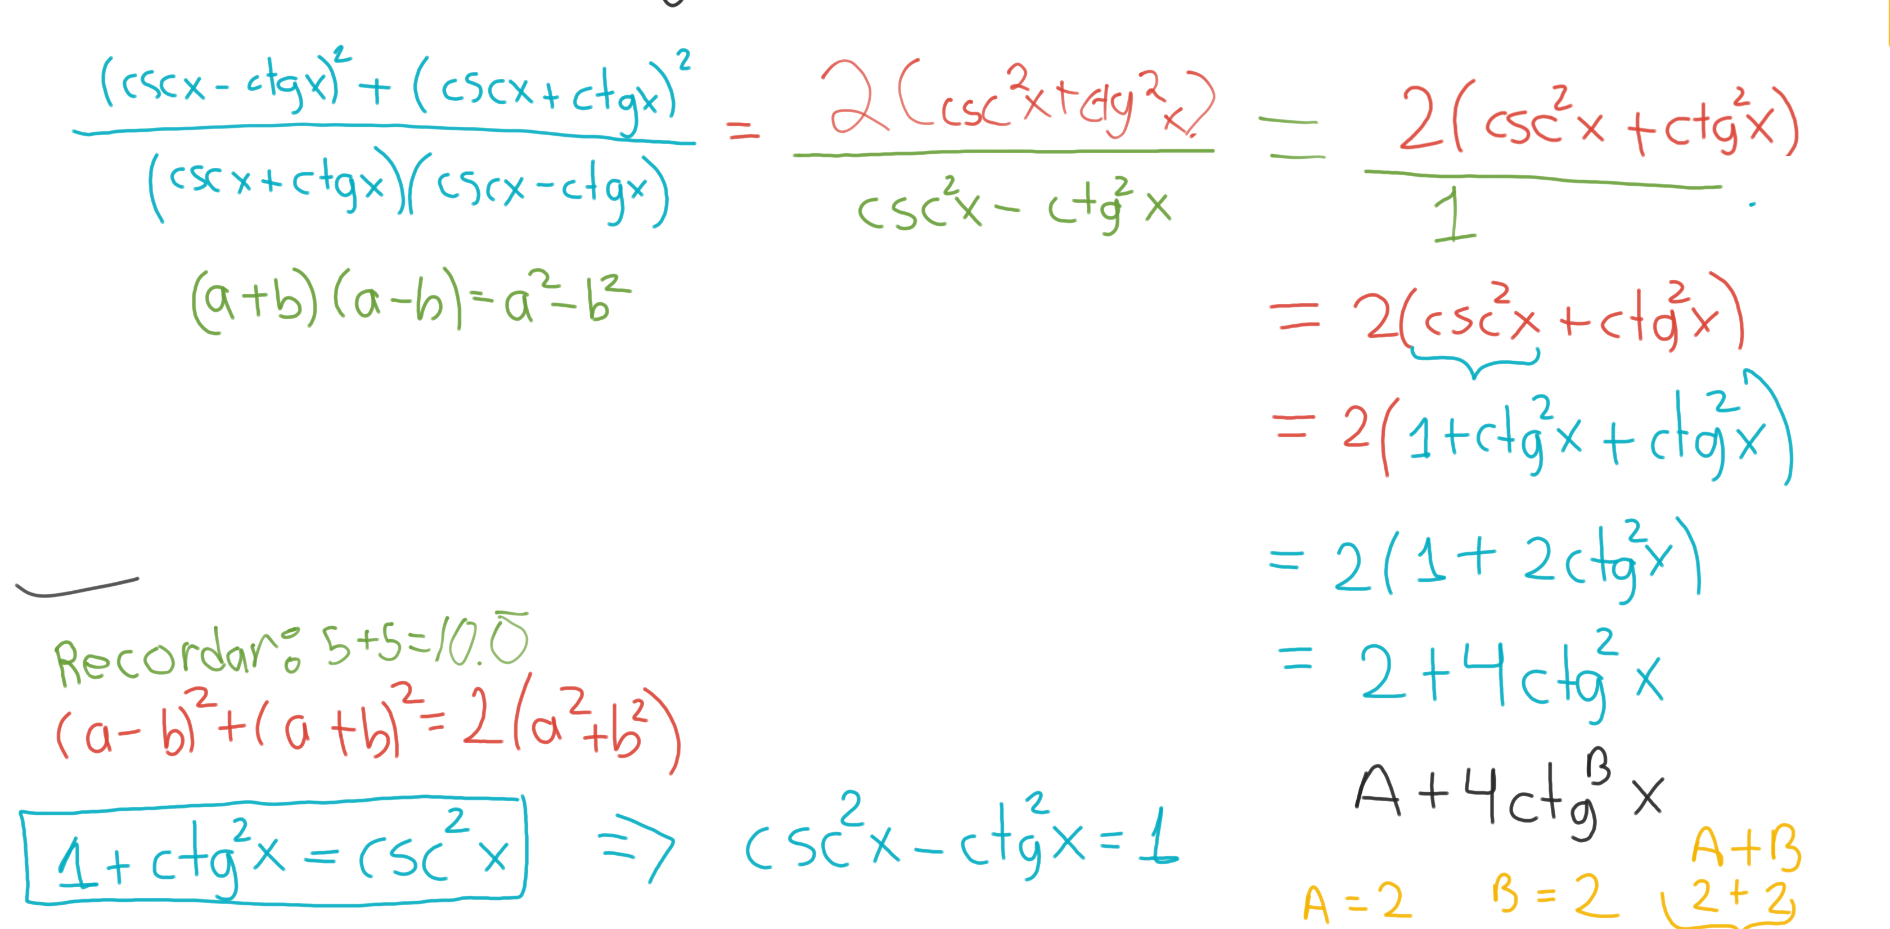 (cscx - ctgx)² + (cscx + ctgx)² / (cscx + ctgx)(cscx - ctgx) = 2(csc²x + ctg²x) / csc²x - ctg²x = 2(csc²x + ctg²x) / 1
(a+b)(a-b) = a² - b²
= 2(csc²x + ctg²x)
= 2(1 + ctg²x + ctg²x)
= 2(1 + 2ctg²x)
= 2 + 4ctg²x
A + 4ctg^B x
A = 2 B = 2
A + B
2 + 2
Recordar: 5+5=10.0
(a - b)² + (a + b)² = 2(a² + b²)
1 + ctg²x = csc²x ⇒ csc²x - ctg²x = 1